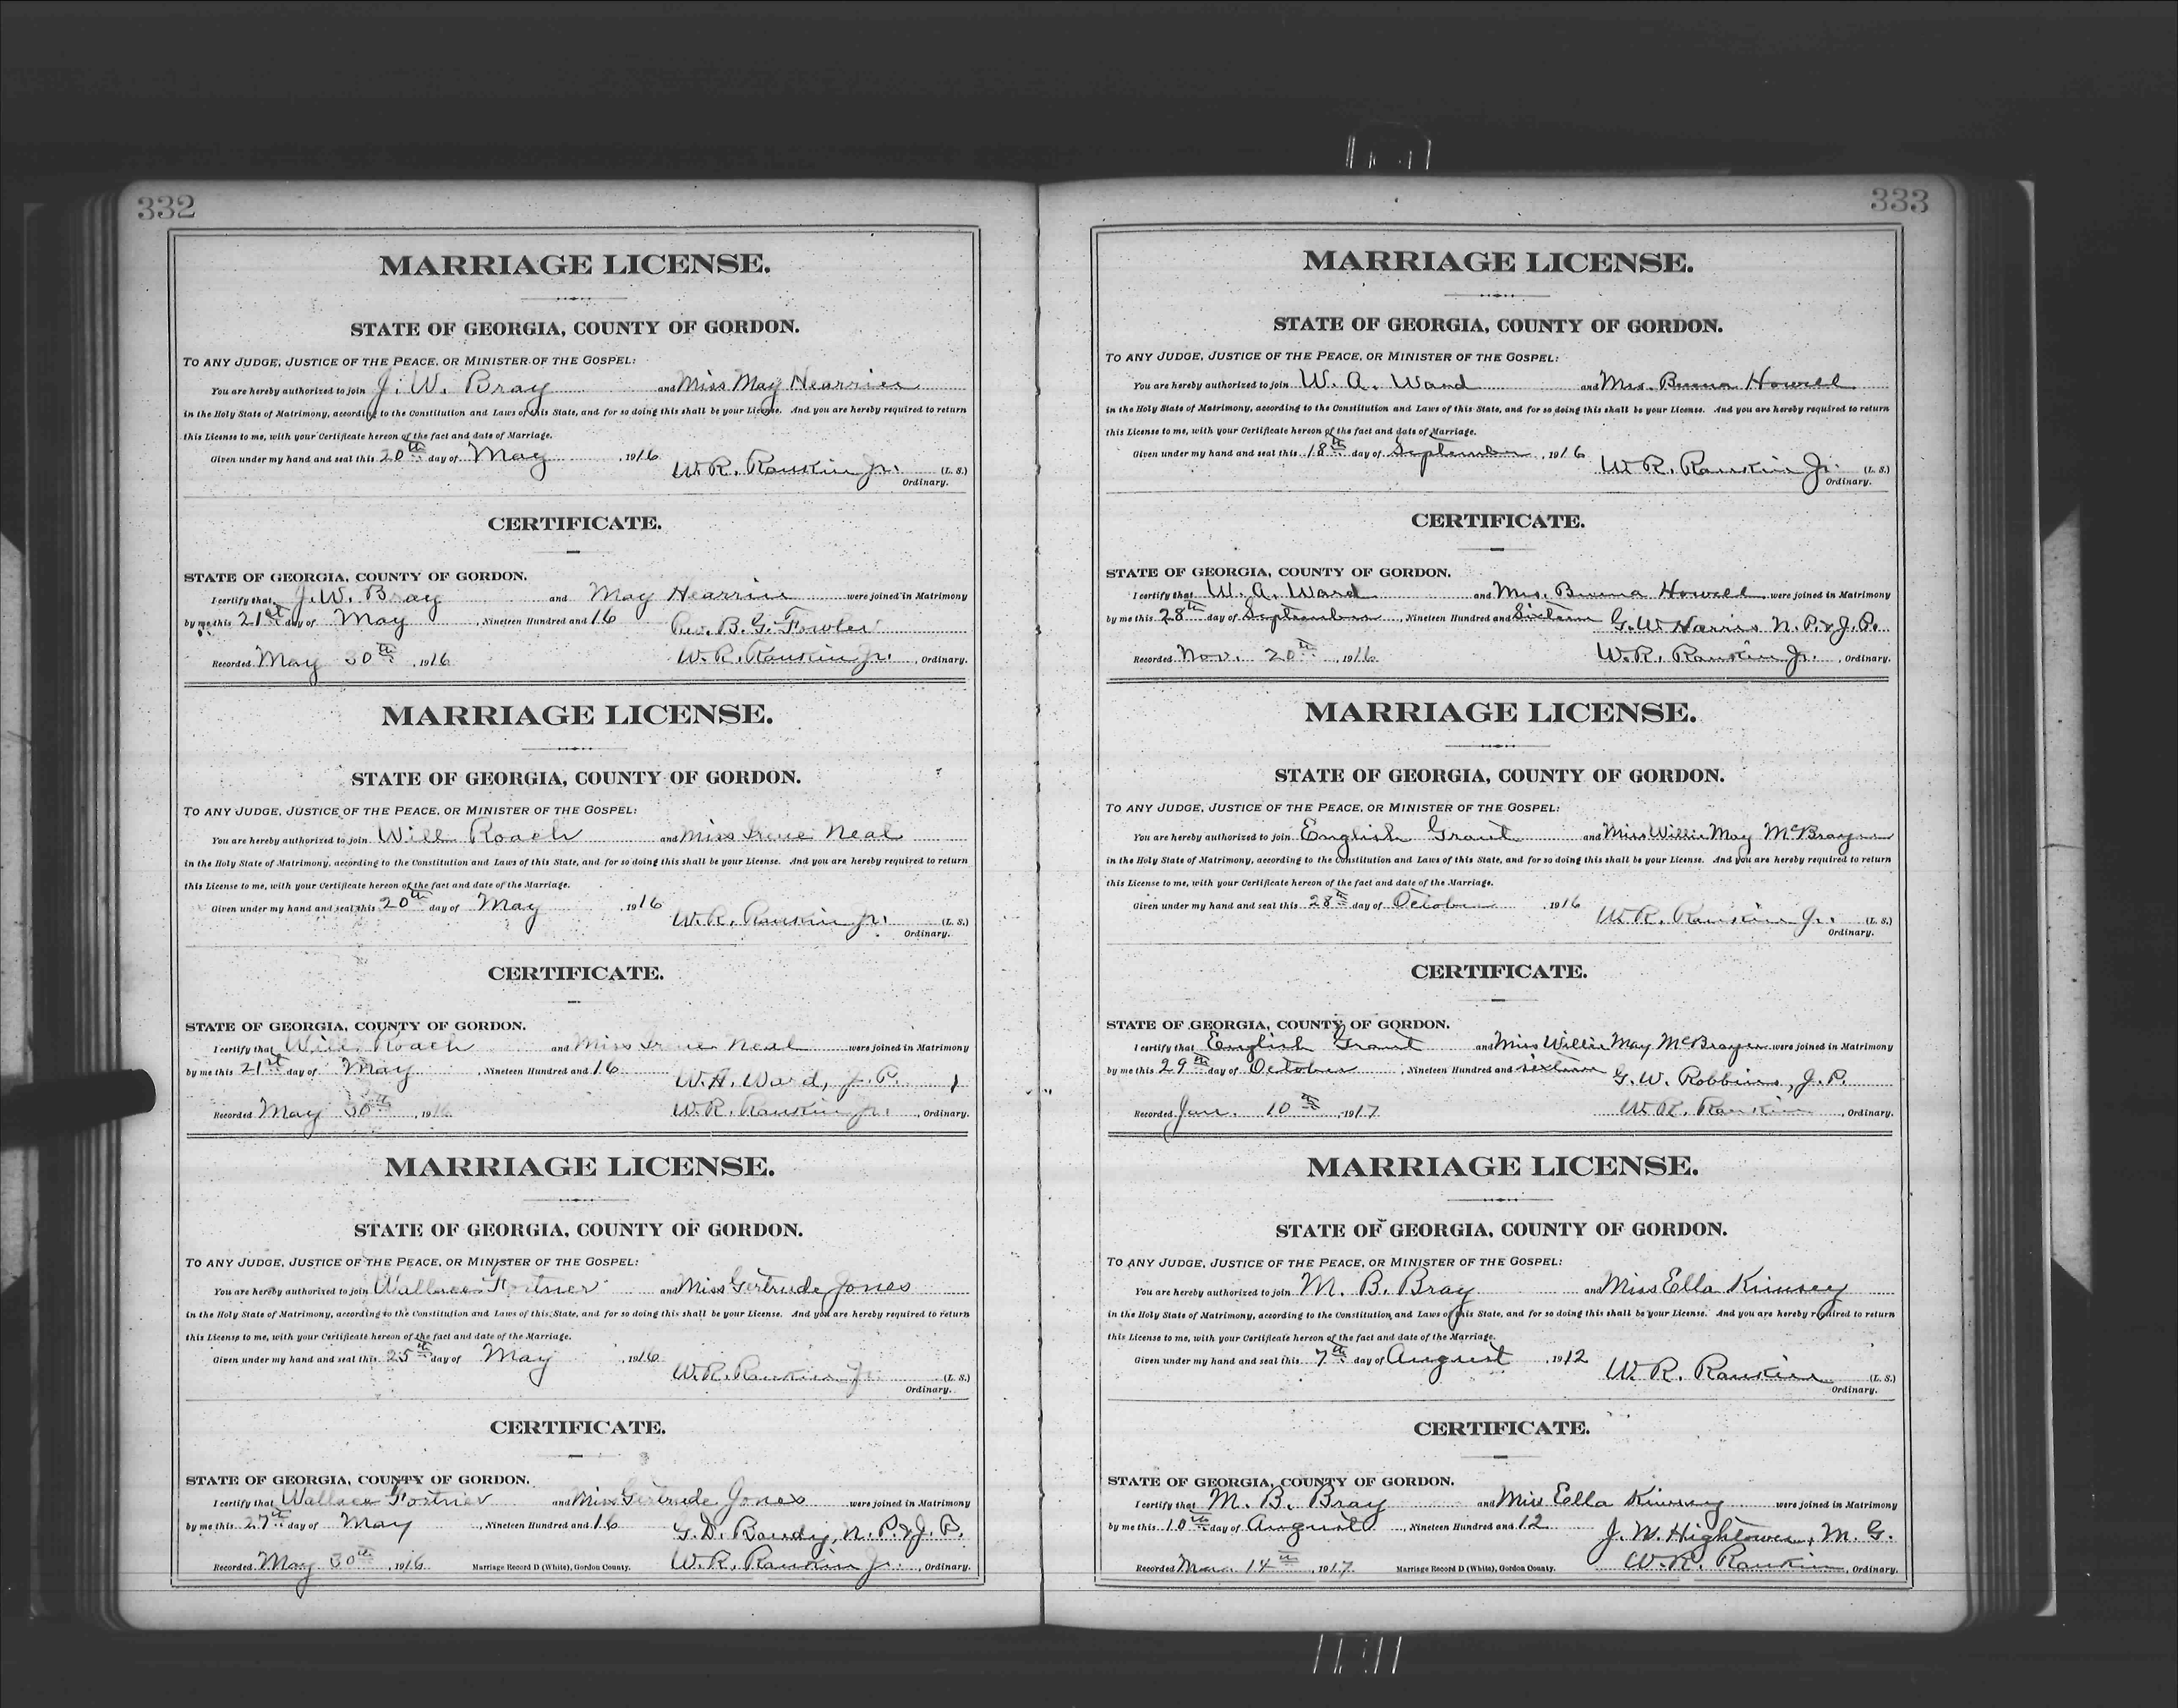 332
MARRIAGE LICENSE.
STATE OF GEORGIA, COUNTY OF GORDON.
TO ANY JUDGE, JUSTICE OF THE PEACE, OR MINISTER OF THE GOSPEL:
You are hereby authorized to join J. W. Bray and Miss May Hearrin
in the Holy State of Matrimony, according to the Constitution and Laws of this State, and for so doing this shall be your License. And you are hereby required to return
this License to me, with your Certificate hereon of the fact and date of Marriage.
Given under my hand and seal this 20th day of May, 1916
W. R. Rankin Jr. (L. S.)
Ordinary.
CERTIFICATE.
STATE OF GEORGIA, COUNTY OF GORDON.
I certify that J. W. Bray and May Hearrin were joined in Matrimony
by me this 21st day of May, Nineteen Hundred and 16 Rev. B. G. Fowler
Recorded May 30th, 1916 W. R. Rankin Jr., Ordinary.
MARRIAGE LICENSE.
STATE OF GEORGIA, COUNTY OF GORDON.
TO ANY JUDGE, JUSTICE OF THE PEACE, OR MINISTER OF THE GOSPEL:
You are hereby authorized to join Will Roach and Miss Irene Neal
in the Holy State of Matrimony, according to the Constitution and Laws of this State, and for so doing this shall be your License. And you are hereby required to return
this License to me, with your Certificate hereon of the fact and date of the Marriage.
Given under my hand and seal this 20th day of May, 1916
W. R. Rankin Jr. (L. S.)
Ordinary.
CERTIFICATE.
STATE OF GEORGIA, COUNTY OF GORDON.
I certify that Will Roach and Miss Irene Neal were joined in Matrimony
by me this 21st day of May, Nineteen Hundred and 16 W. H. Ward, J. P.
Recorded May 30th, 1916 W. R. Rankin Jr., Ordinary.
MARRIAGE LICENSE.
STATE OF GEORGIA, COUNTY OF GORDON.
TO ANY JUDGE, JUSTICE OF THE PEACE, OR MINISTER OF THE GOSPEL:
You are hereby authorized to join Wallace Fortner and Miss Gertrude Jones
in the Holy State of Matrimony, according to the Constitution and Laws of this State, and for so doing this shall be your License. And you are hereby required to return
this License to me, with your Certificate hereon of the fact and date of the Marriage.
Given under my hand and seal this 25th day of May, 1916
W. R. Rankin Jr. (L. S.)
Ordinary.
CERTIFICATE.
STATE OF GEORGIA, COUNTY OF GORDON.
I certify that Wallace Fortner and Miss Gertrude Jones were joined in Matrimony
by me this 27th day of May, Nineteen Hundred and 16 G. D. N. P. & J. P.
Recorded May 30th, 1916 Marriage Record D (White), Gordon County. W. R. Rankin Jr., Ordinary.
333
MARRIAGE LICENSE.
STATE OF GEORGIA, COUNTY OF GORDON.
TO ANY JUDGE, JUSTICE OF THE PEACE, OR MINISTER OF THE GOSPEL:
You are hereby authorized to join W. A. Ward and Mrs. Buena Howell
in the Holy State of Matrimony, according to the Constitution and Laws of this State, and for so doing this shall be your License. And you are hereby required to return
this License to me, with your Certificate hereon of the fact and date of Marriage.
Given under my hand and seal this 18th day of September, 1916
W. R. Rankin Jr. (L. S.)
Ordinary.
CERTIFICATE.
STATE OF GEORGIA, COUNTY OF GORDON.
I certify that W. A. Ward and Mrs. Buena Howell were joined in Matrimony
by me this 28th day of September, Nineteen Hundred and Sixteen G. W. Harris N. P. & J. P.
Recorded Nov. 20th, 1916 W. R. Rankin Jr., Ordinary.
MARRIAGE LICENSE.
STATE OF GEORGIA, COUNTY OF GORDON.
TO ANY JUDGE, JUSTICE OF THE PEACE, OR MINISTER OF THE GOSPEL:
You are hereby authorized to join English Grant and Miss Willie May McBrayer
in the Holy State of Matrimony, according to the Constitution and Laws of this State, and for so doing this shall be your License. And you are hereby required to return
this License to me, with your Certificate hereon of the fact and date of the Marriage.
Given under my hand and seal this 28th day of October, 1916
W. R. Rankin Jr. (L. S.)
Ordinary.
CERTIFICATE.
STATE OF GEORGIA, COUNTY OF GORDON.
I certify that English Grant and Miss Willie May McBrayer were joined in Matrimony
by me this 29th day of October, Nineteen Hundred and sixteen G. W. Robbins, J. P.
Recorded Jan. 10th, 1917 W. R. Rankin, Ordinary.
MARRIAGE LICENSE.
STATE OF GEORGIA, COUNTY OF GORDON.
TO ANY JUDGE, JUSTICE OF THE PEACE, OR MINISTER OF THE GOSPEL:
You are hereby authorized to join M. B. Bray and Miss Ella Kimsey
in the Holy State of Matrimony, according to the Constitution and Laws of this State, and for so doing this shall be your License. And you are hereby required to return
this License to me, with your Certificate hereon of the fact and date of the Marriage.
Given under my hand and seal this 7th day of August, 1912
W. R. Rankin (L. S.)
Ordinary.
CERTIFICATE.
STATE OF GEORGIA, COUNTY OF GORDON.
I certify that M. B. Bray and Miss Ella Kimsey were joined in Matrimony
by me this 10th day of August, Nineteen Hundred and 12 J. W. Hightower, M. G.
Recorded Mar. 14th, 1917 Marriage Record D (White), Gordon County. W. R. Rankin, Ordinary.